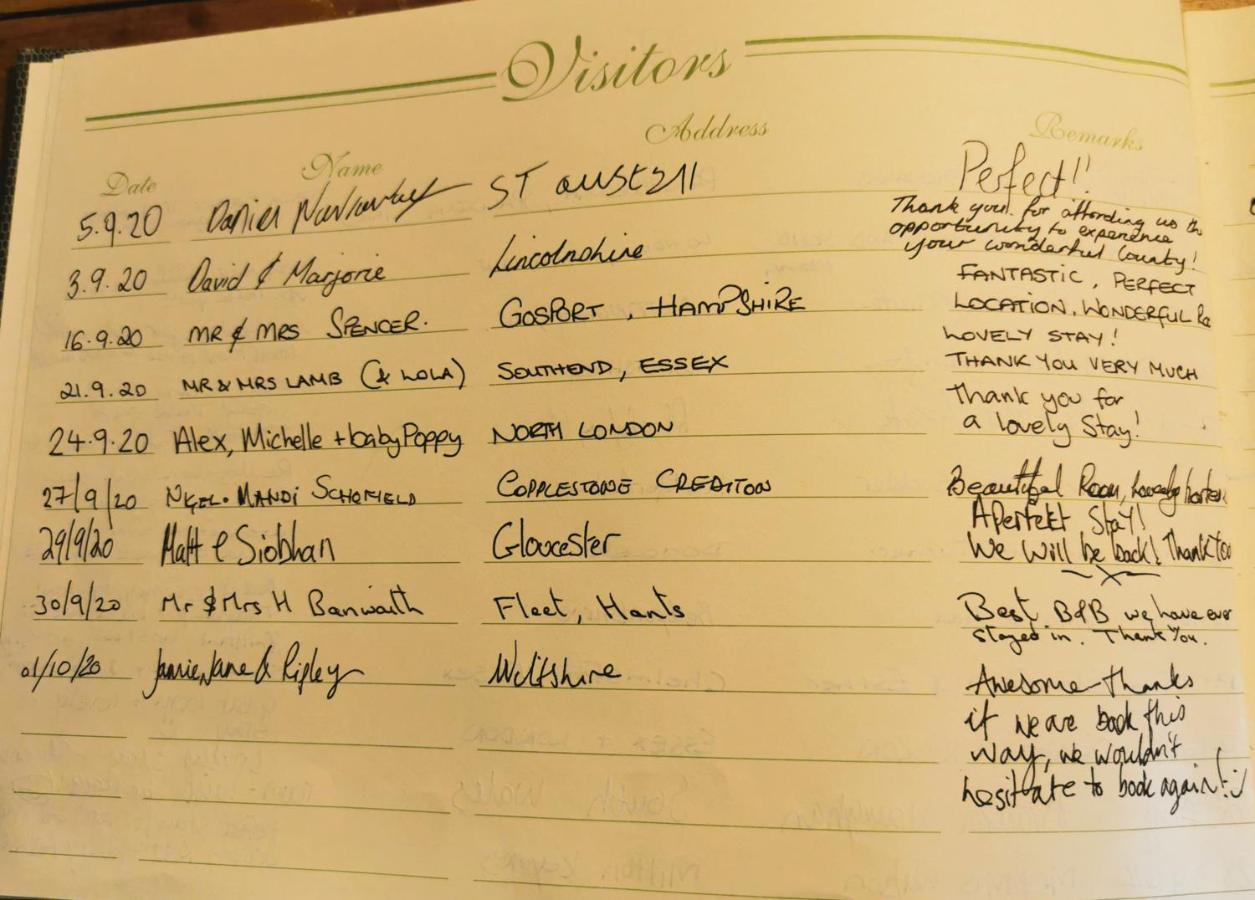 Visitors
Date Name Address Remarks
5.9.20 Daniel ST Perfect!!
3.9.20 David & Marjorie Lincolnshire Thank you for affording us the
opportunity to experience
your wonderful County!
16.9.20 MR & MRS SPENCER. GOSPORT, HAMPSHIRE FANTASTIC, PERFECT
LOCATION, WONDERFUL
21.9.20 MR & MRS LAMB (& LOLA) SOUTHEND, ESSEX LOVELY STAY!
THANK YOU VERY MUCH
24.9.20 Alex, Michelle + baby Poppy NORTH LONDON Thank you for
a lovely Stay!
27/9/20 MANDI SCHOFIELD COPPLESTONE CREDITON Beautiful Room,
29/9/20 Matt & Siobhan Gloucester A Perfekt Stay!
We Will be back! Thank
30/9/20 Mr & Mrs H Fleet, Hants Best B&B we have ever
stayed in. Thank You.
01/10/20 Jamie, Jane & Ripley Wiltshire Awesome thanks
if we are back this
way, we wouldn't
hesitate to book again! :)